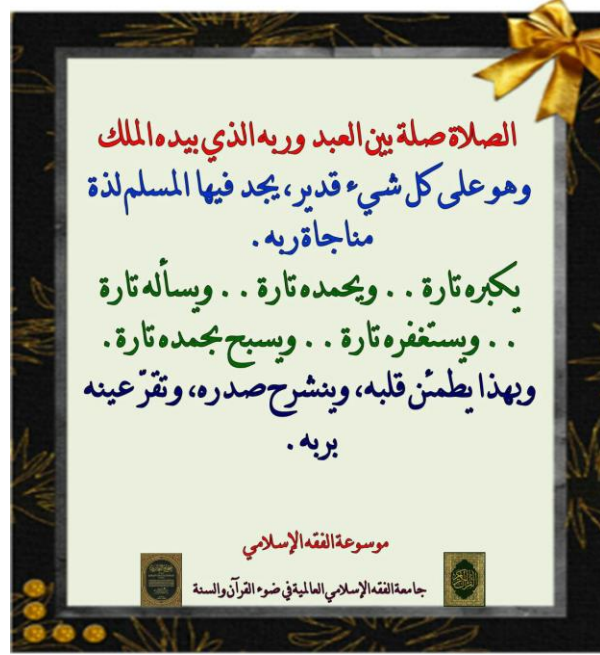 الصلاة صلة بين العبد وربه الذي بيده الملك
وهو على كل شيء قدير، يجد فيها المسلم لذة
مناجاة ربه .
يكبره تارة . . ويحمده تارة . . ويسأله تارة
. . ويستغفره تارة . . ويسبح بحمده تارة .
وبهذا يطمئن قلبه، وينشرح صدره، وتقرّ عينه
بربه .
موسوعة الفقه الإسلامي
جامعة الفقه الإسلامي العالمية في ضوء القرآن والسنة